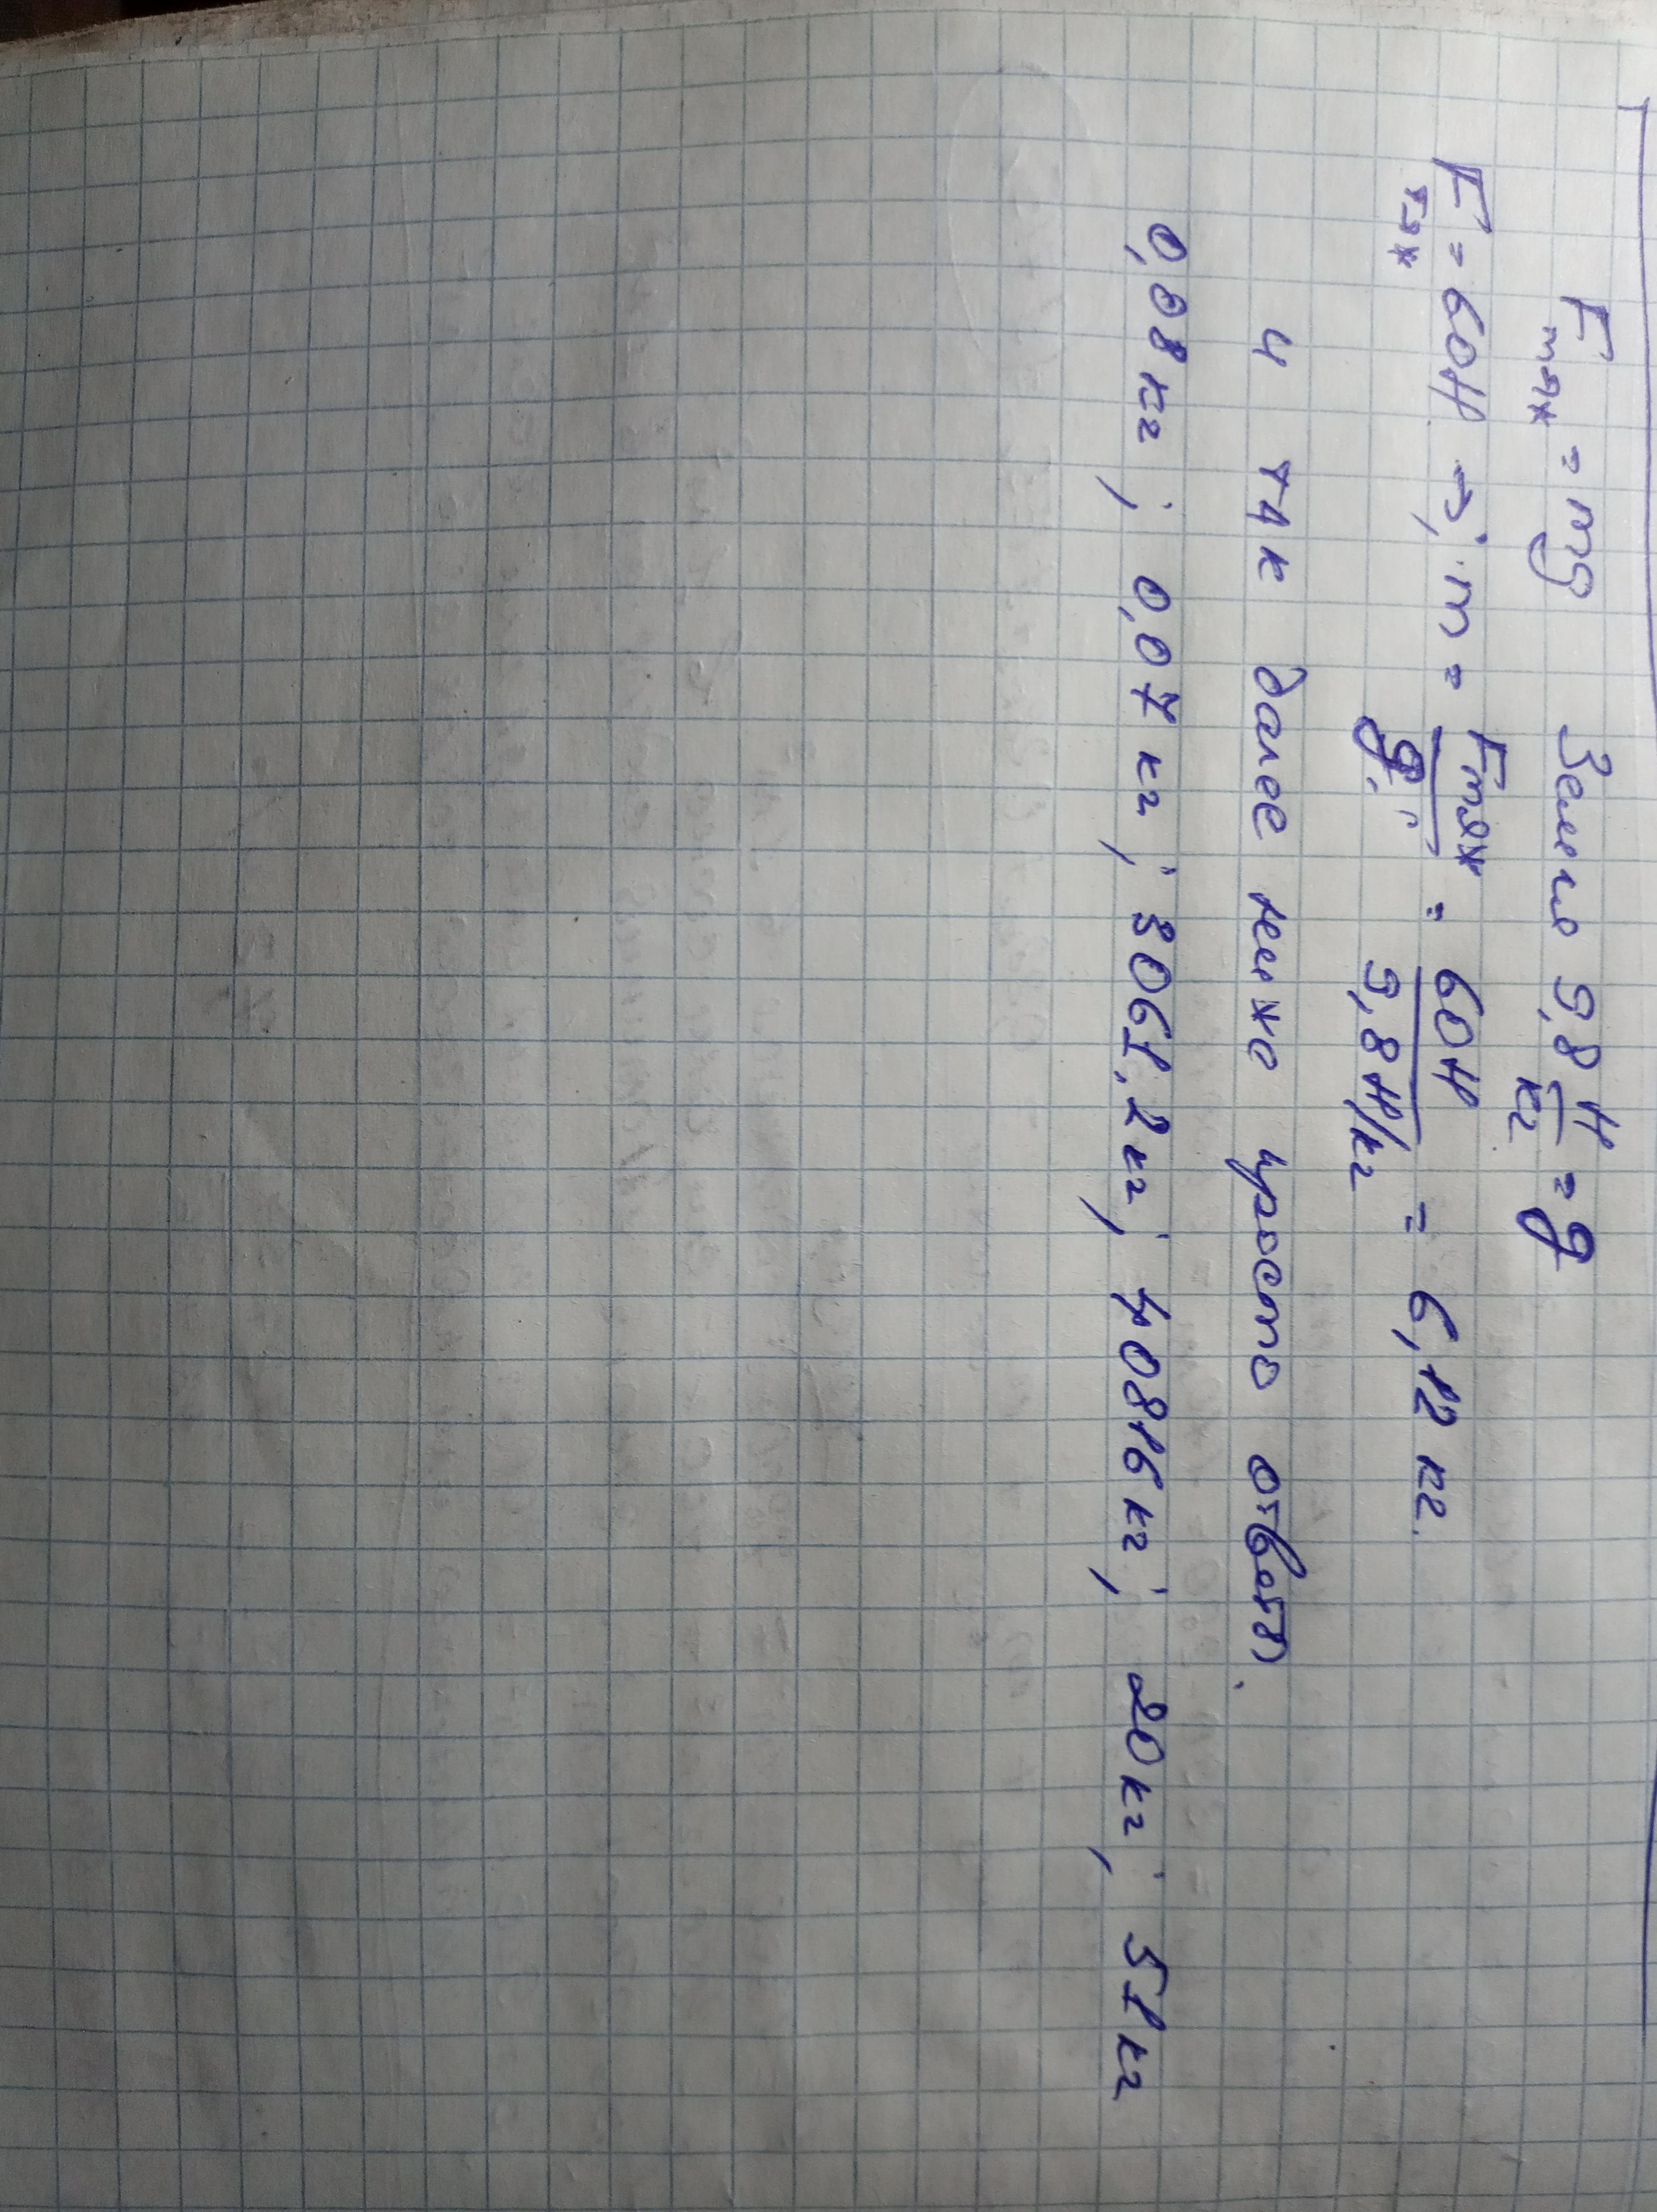 Fтяж = mg Земля 9,8 Н/кг = g
Fтяж = 60Н =>; m = Fтяж/g = 60Н/9,8Н/кг = 6,12 кг.
и так далее ниже просто ответы.
0,08кг; 0,07кг; 3061,2кг; 40816кг; 20кг; 51кг